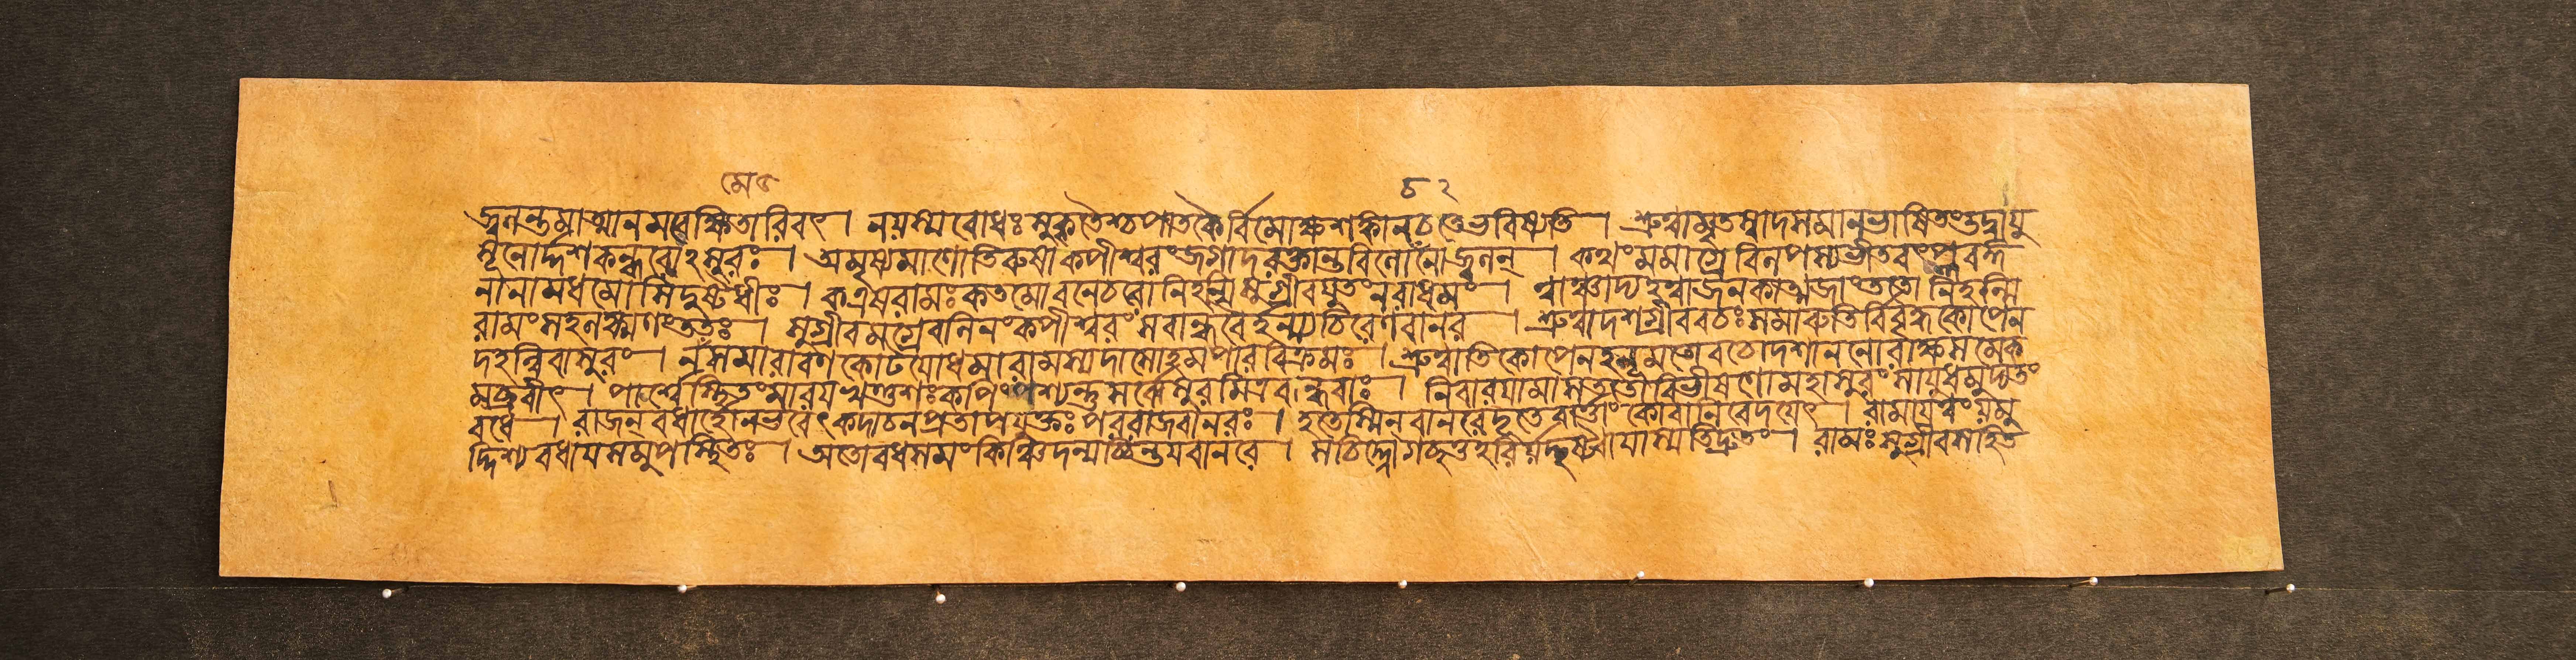 মে৫ ৮২
দ্রুশন্তমাত্মানমবেক্ষিতারিবৎ। নয়স্যবোধঃসুকৃতৈশ্চপাতকৈর্বিমোক্ষশঙ্কাপিচতেভবিষ্যতি। শ্রুত্বামৃতস্বাদসমানভাষিতংতদ্বায়ু
সূনোর্দ্দশকন্ধরোঽসুরঃ। অমৃষ্যমাণোতিরুষাকপীশ্বরংজগাদরক্তান্তবিলোচনোজ্বলন্। কথংমমাগ্রেবিলপস্যভীতবৎপ্লবঙ্গ
মানামধমোসিদুষ্টধীঃ। কএষরামঃকতমোবনেচরোনিহন্মিসুগ্রীবযুতংনরাধমং। ত্বাঞ্চাদ্যহত্বাজনকাত্মজাংততোনিহন্মি
রামংসহলক্ষ্মণংততঃ। সুগ্রীবমগ্রেবলিনংকপীশ্বরংসবান্ধবৈর্হন্ম্যচিরেণবানর। শ্রুত্বাদশগ্রীববচঃসমারুতির্বিবৃদ্ধকোপেন
দহন্নিবাসুরং। নমেসমারাবণকোটয়োধমারামস্যদাসোহমপারবিক্রমঃ। শ্রুত্বাতিকোপেনহনূমতোবচোদশাননোরাক্ষসমেক
মব্রবীৎ। পার্শ্বেস্থিতংমারয়খণ্ডশঃকপিংপশ্যন্তুসর্বেসুরমিত্রবান্ধবাঃ। নিবারয়ামাসততোবিভীষণোমহাসুরংসায়ুধমুদ্যতং
বধে। রাজন্বধার্হোনভবেৎকদাচনপ্রতাপযুক্তঃপররাজবানরঃ। হতেস্মিন্বানরেদূতেবার্ত্তাংকোবানিবেদয়েৎ। রামায়ত্বংয়মু
দ্দিশ্যবধায়সমুপস্থিতঃ। অতোবধসমংকিঞ্চিদন্যচ্চিন্তয়বানরে। সচিহ্নোগচ্ছতুহরির্যদ্দৃষ্ট্বায়াস্যতিদ্রুতং। রামঃসুগ্রীবসহিত